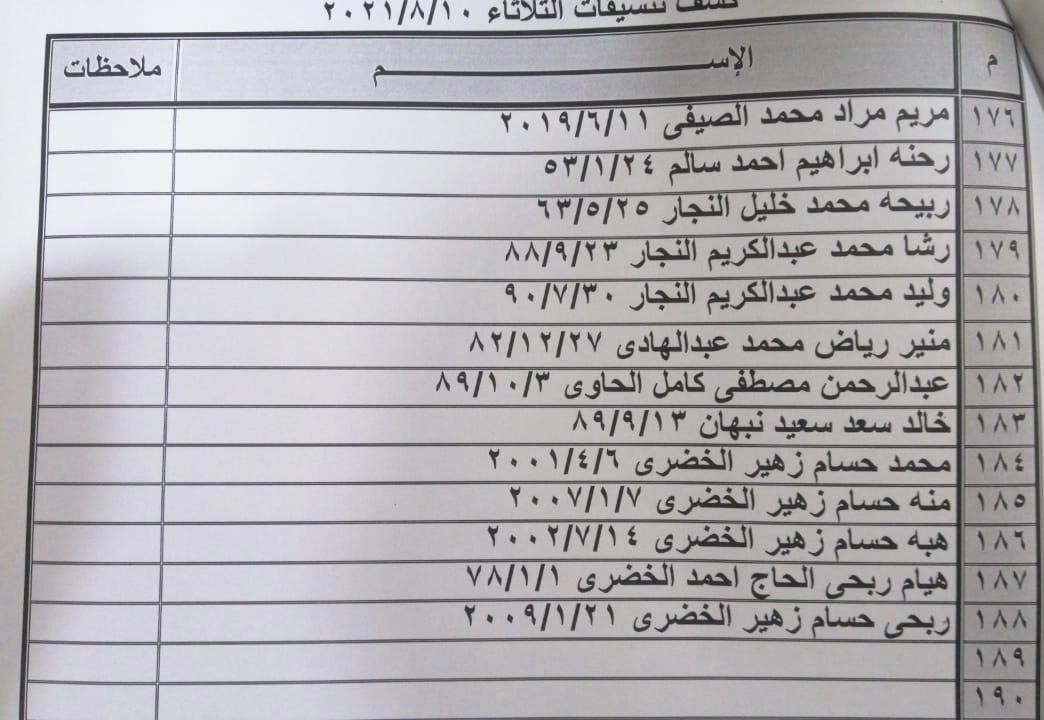 كشف تنسيقات الثلاثاء ٢٠٢١/٨/١٠
م الإســـــــــــــم ملاحظات
١٧٦ مريم مراد محمد الصيفى ٢٠١٩/٦/١١
١٧٧ رحنه ابراهيم احمد سالم ٥٣/١/٢٤
١٧٨ ربيحه محمد خليل النجار ٦٣/٥/٢٥
١٧٩ رشا محمد عبدالكريم النجار ٨٨/٩/٢٣
١٨٠ وليد محمد عبدالكريم النجار ٩٠/٧/٣٠
١٨١ منير رياض محمد عبدالهادى ٨٢/١٢/٢٧
١٨٢ عبدالرحمن مصطفى كامل الحاوى ٨٩/١٠/٣
١٨٣ خالد سعد سعيد نبهان ٨٩/٩/١٣
١٨٤ محمد حسام زهير الخضرى ٢٠٠١/٤/٦
١٨٥ منه حسام زهير الخضرى ٢٠٠٧/١/٧
١٨٦ هبه حسام زهير الخضرى ٢٠٠٢/٧/١٤
١٨٧ هيام ربحى الحاج احمد الخضرى ٧٨/١/١
١٨٨ ربحى حسام زهير الخضرى ٢٠٠٩/١/٢١
١٨٩
١٩٠